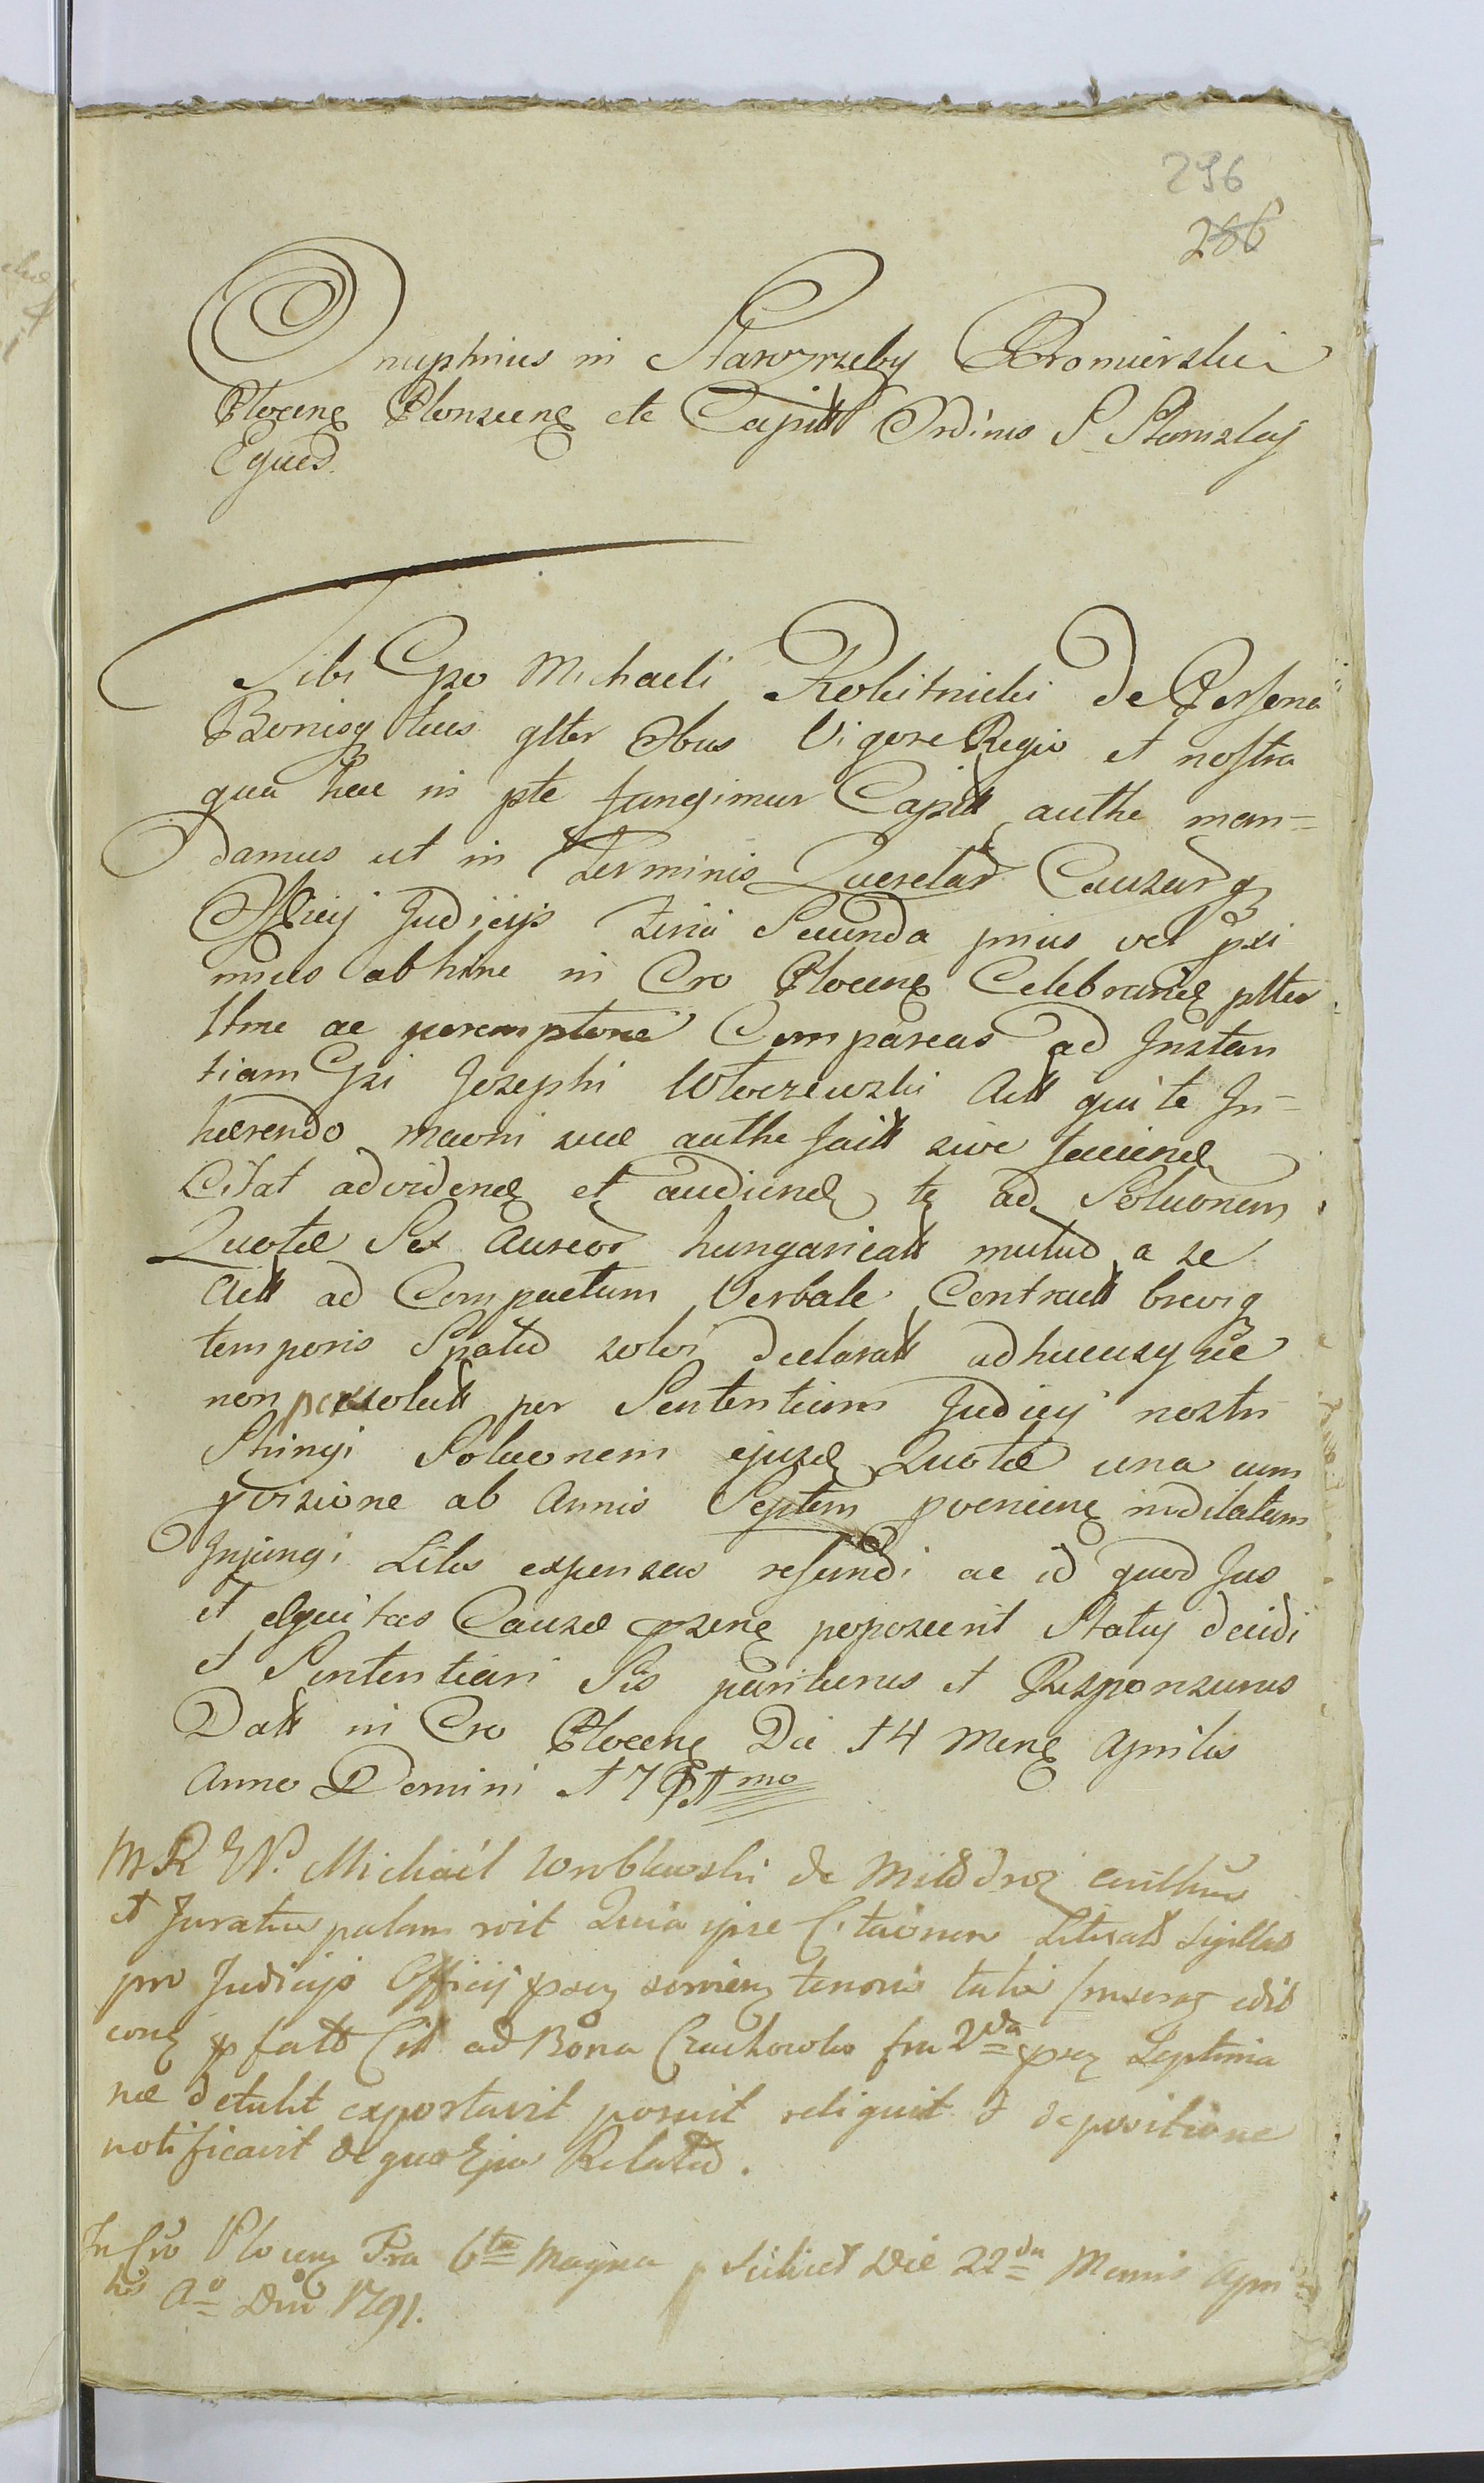 296
286
Onuphrius in Starozrzeby Bromierski
Plocens Plonscens etc Capitt Ordinis S Stanislaj
Equeś
Tibi Gso Michaeli Rokitnicki de Persona
Bonisq tuis glter oibus Vigore Regio et nostra
qua hac in pte fungimur Capitt autthe man=
damus ut in Terminis Querelar Causarq
Officij Judicijs feria Secunda prius vel pxi
mius abhinc in Cro Plocens Celebrand plter
ltme ac peremptorie Compareas ad Instan
tiam Gsi Josephi Wloczewski Actt qui te In=
hærendo maoni suæ autthe factt sive faciend
Citat ad vidend et audiend te ad Soluonem
Quotæ Sex Aureor hungaricatt mutuo a se
Actt ad Compactum Verbale Contractt brevis
temporis Spatio solvi declaratt adhucusq re
non persolutt per Sententiam Judicij nostri
Stringi Soluonem ejusd Quotæ una cum
pvisione ab Annis Septem pvenien inditatum
Injungi Litis expensas refundi ac id quod Jus
et Æquitas Causæ psens poposcerit Statuj decidi
et Sententiari Sis pariturus et Responsurus
Datt in Cro Plocens Die 14 Mens Aprilis
Anno Domini 1791mo
MR EN. Michaël Wroblewski de Miłodroż autthus
et Juratus palam roit Quia ipse Citaonem Literatt Sigillat
pro Judicijs Officij psen servien tenoris talis
ꝓ fatto Citt ad Bona Czachowo fra 2da psen Septima
næ detulit exportavit posuit reliquit et de positione
notificavit de quo Ejus Relatio.
In Cro Plocens Fra 6ta Magna Scilicet Die 22da Mensis Apri
lis Ao Dni 1791.